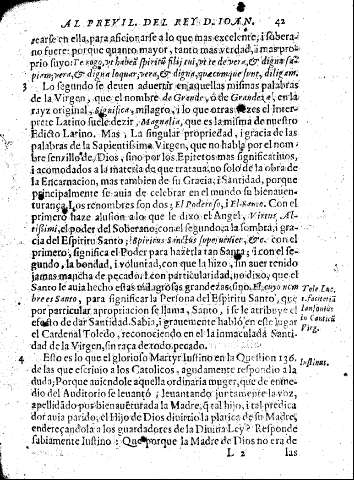 AL PREVIL. DEL REY D. IOAN. 42
rearse en ella, para aficionarse a lo que mas excelente, i sobera-
no fuere: por que quanto mayor, tanto mas verdad, a mas pro-
prio suyo: Te rogo, vt habeã spiritũ filij tui, vt te de vera, & digna sa-
piam; vera, & digna loquar, vera, & digna, quæcumque sunt, diligam.
3 Lo segundo se deven aduertir en aquellas mismas palabras
de la Virgen, que el nombre de Grande, ò de Grandeza, en la
rayz original, significa, milagro, i lo que otras vezes el Inter-
prete Latino suele dezir, Magnalia, que es la misma de nuestro
Edicto Latino. Mas, La singular propriedad, i gracia de las
palabras de la Sapientissima Virgen, que no habla por el nom-
bre senzillo de Dios, sino por los Epitetos mas significatiuos,
i acomodados a la materia de que trataua, no solo de la obra de
la Encarnacion, mas tambien de su Gracia, i Santidad, porque
principalmente se auia de celebrar en el mundo su bienauen-
turança. Los renombres son dos; El Poderoso, i El Santo. Con el
primero haze alusion a lo que le dixo el Angel, Virtus Al-
tissimi, el poder del Soberano; con el segundo, a la sombra, i gra-
cia del Espiritu Santo; Spiritus Sanctus superueniet, &c. con el
primero, significa el Poder para hazerla tan Santa; i con el se-
gundo, la bondad, i voluntad, con que la hizo, sin auer tenido
jamas mancha de pecado: i con particularidad, no dixo, que el
Santo le auia hecho estas milagrosas grandezas, sino El, cuyo nom
bre es Santo, para significar la Persona del Espiritu Santo, que
por particular apropriacion se llama, Santo, i se le atribuye el
efeto de dar Santidad. Sabia, i grauemente hablò en este lugar
el Cardenal Toledo, reconociendo en el la inmaculada Santi-
dad de la Virgen, sin raça de todo pecado.
Tole Luc.
Virg.
4 Esto es lo que el glorioso Martyr Iustino en la Question 136.
de las que escriuio a los Catolicos, agudamente respondio a la
duda; Porque auiendole aquella ordinaria muger, que de en me-
dio del Auditorio se leuantò; leuantando juntamente la voz,
apellidado por bienauenturada la Madre, q̃ tal hijo, i tal predica
dor auia parido, el Hijo de Dios diuirtio la platica de su Madre,
endereçandola a los guardadores de la Diuina Ley? Responde
sabiamente Iustino: Que porque la Madre de Dios no era de
Iustinus.
L 2 las